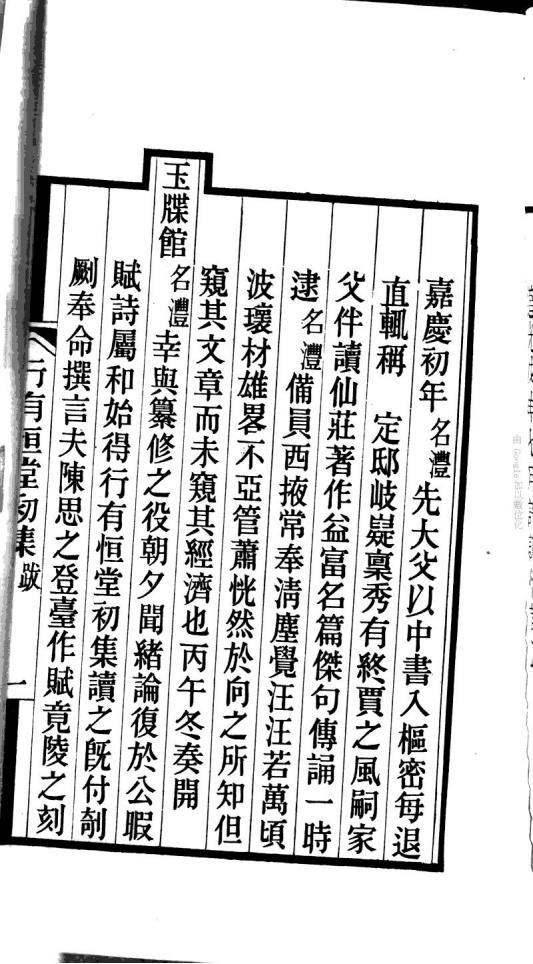 嘉慶初年名灃先大父以中書入樞密每退
直輒稱 定邸岐嶷稟秀有終賈之風嗣家
父伴讀仙莊著作益富名篇傑句傳誦一時
逮名灃備員西掖常奉清塵覺汪汪若萬頃
波瓌材雄畧不亞管蕭恍然於向之所知但
窺其文章而未窺其經濟也丙午冬奏開
玉牒館名灃幸與纂修之役朝夕聞緒論復於公暇
賦詩屬和始得行有恒堂初集讀之旣付剞
劂奉命撰言夫陳思之登臺作賦竟陵之刻
行有恒堂初集 跋
一
由 Google 加以數位化